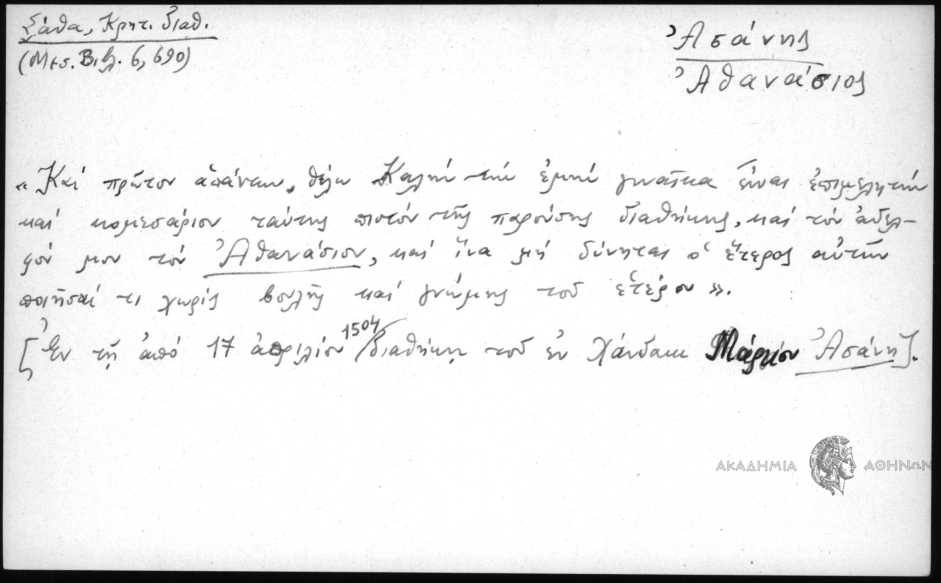 Σάθα, Κρητ. διαθ.
(Μεσ. Βιβλ. 6, 690)
Ἀσάνης
Ἀθανάσιος
«Καί πρῶτον ἁπάντων, θέλω Καλήν τήν ἐμήν γυναῖκα εἶναι ἐπιμελητήν
καί κομεσάριον ταύτης πιστόν τῆς παρούσης διαθήκης, καί τόν ἀδελ-
φόν μου τόν Ἀθανάσιον, καί ἵνα μή δύνηται ὁ ἕτερος αὐτῶν
ποιῆσαί τι χωρίς βουλῆς καί γνώμης τοῦ ἑτέρου».
[Ἐν τῇ ἀπό 17 ἀπριλίου 1504 διαθήκῃ τοῦ ἐν Χάνδακι Ἀσάνη].
ΑΚΑΔΗΜΙΑ ΑΘΗΝΩΝ